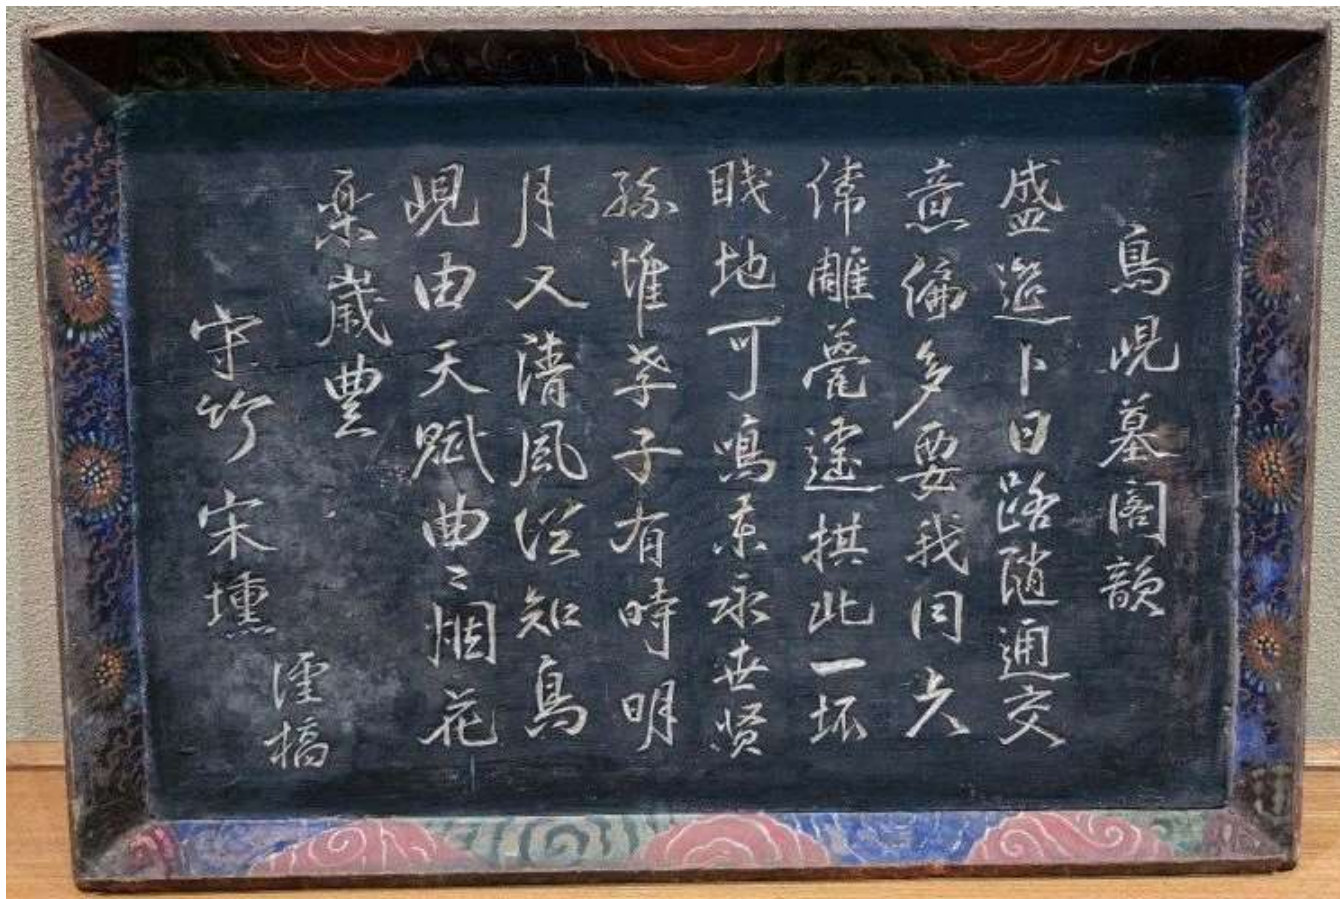 鳥峴墓閣韻
盛筵卜日路隨通交
意偏多要我同
偉雕甍遠拱此一坏
賤地可鳴東永世賢
孫惟孝子有時明
月又淸風從知鳥
峴由天賦曲〻烟花
樂歲豊
守竹宋壎
謹稿